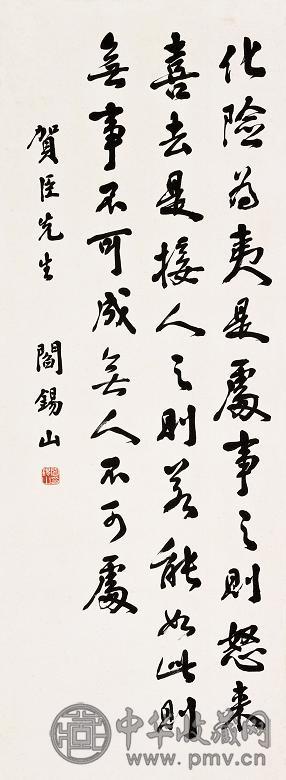 化險為夷是處事之則怒来
喜去是接人之則若能如此則
無事不可成無人不可處
賀臣先生　閻錫山
中华收藏网
www.pmv.cn